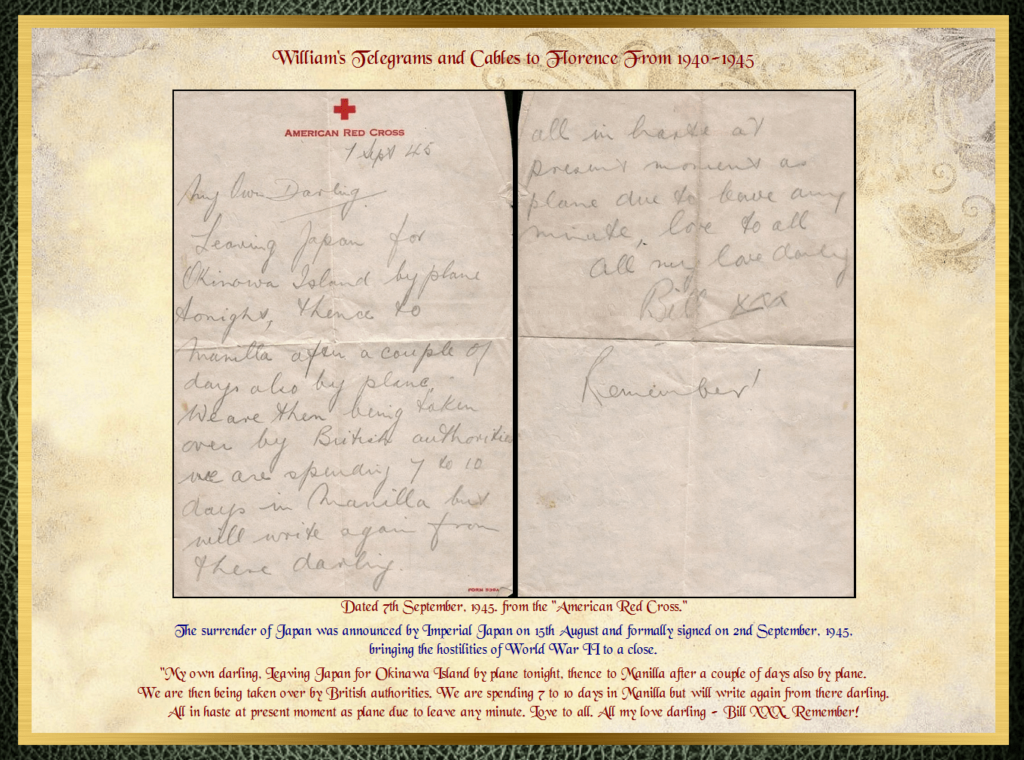 William's Telegrams and Cables to Florence From 1940-1945
AMERICAN RED CROSS
7 Sept 45
My Own Darling.
Leaving Japan for
Okinawa Island by plane
tonight, thence to
Manilla after a couple of
days also by plane.
We are then being taken
over by British authorities
we are spending 7 to 10
days in Manilla but
will write again from
there darling.
all in haste at
present moment as
plane due to leave any
minute, love to all
All my love darling
Bill xxx
Remember!
Dated 7th September, 1945, from the "American Red Cross."
The surrender of Japan was announced by Imperial Japan on 15th August and formally signed on 2nd September, 1945,
bringing the hostilities of World War II to a close.
"My own darling, Leaving Japan for Okinawa Island by plane tonight, thence to Manilla after a couple of days also by plane.
We are then being taken over by British authorities. We are spending 7 to 10 days in Manilla but will write again from there darling.
All in haste at present moment as plane due to leave any minute. Love to all, All my love darling - Bill XXX Remember!